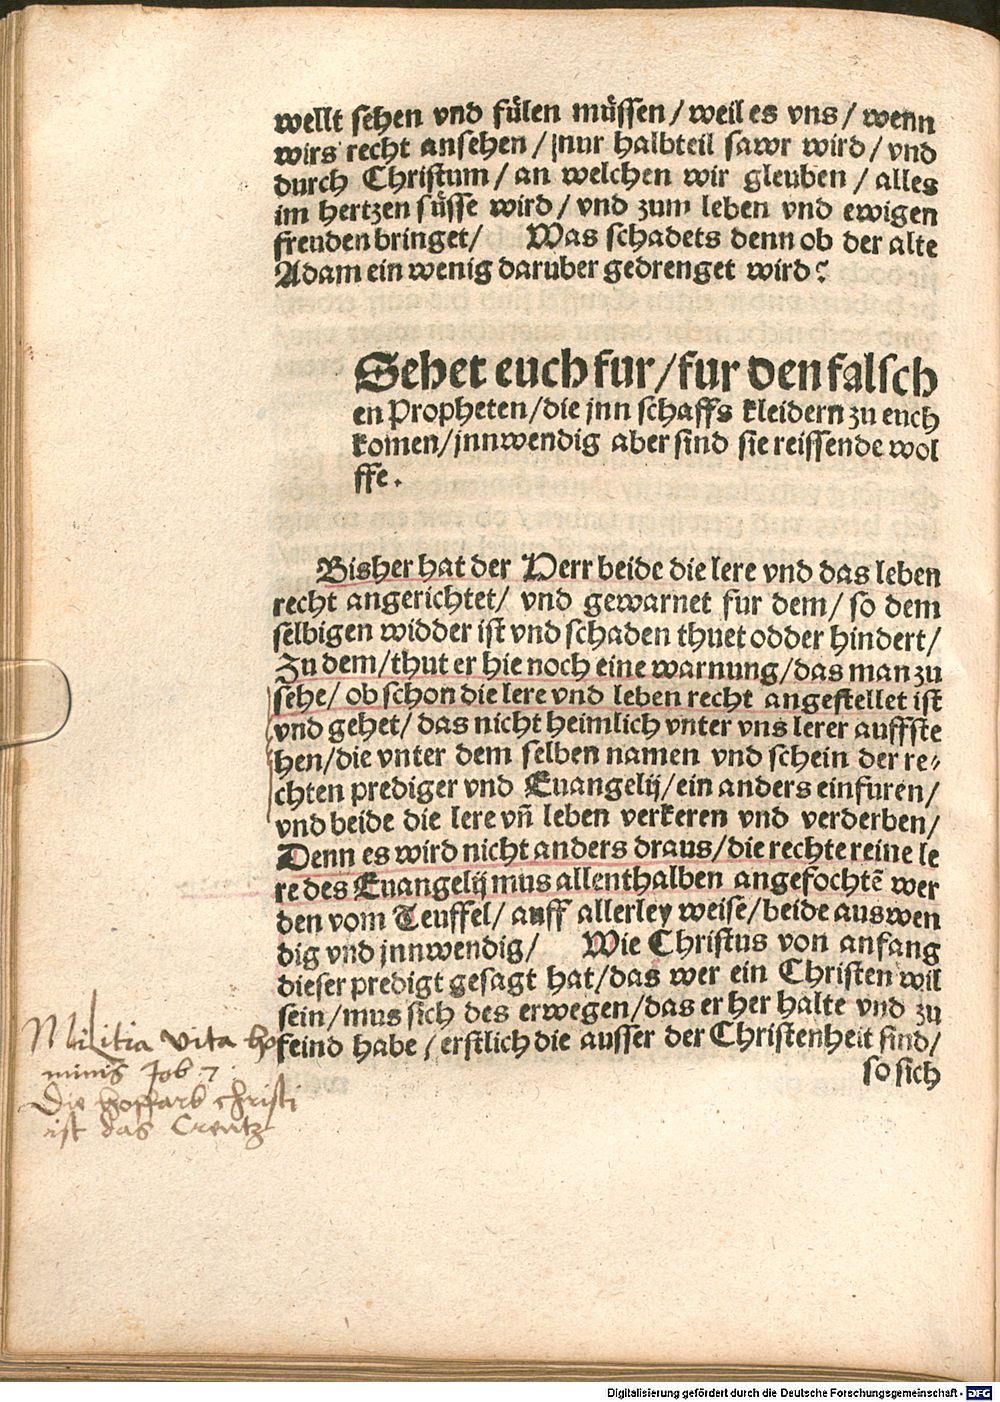 wellt sehen vnd fülen müssen / weil es vns / wenn
wirs recht ansehen / jnur halbteil sawr wird / vnd
durch Christum / an welchen wir gleuben / alles
im hertzen süsse wird / vnd zum leben vnd ewigen
freuden bringet / Was schadets denn ob der alte
Adam ein wenig darüber gedrenget wird?
Sehet euch fur / fur den falsch
en Propheten / die jnn schaffs kleidern zu euch
komen / jnnwendig aber sind sie reissende wol
ffe.
Bisher hat der Herr beide die lere vnd das leben
recht angerichtet / vnd gewarnet fur dem / so dem
selbigen widder ist vnd schaden thuet odder hindert /
Zu dem / thut er hie noch eine warnung / das man zu
sehe / ob schon die lere vnd leben recht angestellet ist
vnd gehet / das nicht heimlich vnter vns lerer auffste
hen / die vnter dem selben namen vnd schein der re⸗
chten prediger vnd Euangelij / ein anders einfuren /
vnd beide die lere vñ leben verkeren vnd verderben /
Denn es wird nicht anders draus / die rechte reine le
re des Euangelij mus allenthalben angefochtē wer
den vom Teuffel / auff allerley weise / beide auswen
dig vnd jnnwendig / Wie Christus von anfang
dieser predigt gesagt hat / das wer ein Christen wil
sein / mus sich des erwegen / das er her halte vnd zu
feind habe / erstlich die ausser der Christenheit sind /
so sich
Militia vita ho
minis Job 7.
Die hoffarb christi
ist das Creutz
Digitalisierung gefördert durch die Deutsche Forschungsgemeinschaft - DFG